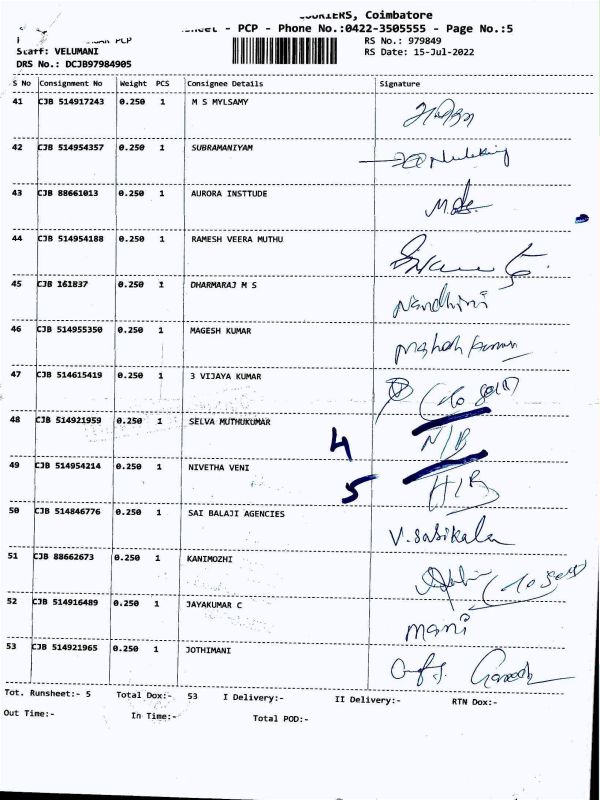 COURIERS, Coimbatore
- PCP - Phone No.:0422-3505555 - Page No.:5
PCP
RS No.: 979849
Staff: VELUMANI
RS Date: 15-Jul-2022
DRS No.: DCJB97984905
S No Consignment No Weight PCS Consignee Details Signature
41 CJB 514917243 0.250 1 M S MYLSAMY
42 CJB 514954357 0.250 1 SUBRAMANIYAM
43 CJB 88661013 0.250 1 AURORA INSTTUDE
44 CJB 514954188 0.250 1 RAMESH VEERA MUTHU
45 CJB 161837 0.250 1 DHARMARAJ M S Nandhini
46 CJB 514955350 0.250 1 MAGESH KUMAR Mahesh Kumar
47 CJB 514615419 0.250 1 3 VIJAYA KUMAR
48 CJB 514921959 0.250 1 SELVA MUTHUKUMAR 4 N/B
49 CJB 514954214 0.250 1 NIVETHA VENI 5 H/B
50 CJB 514846776 0.250 1 SAI BALAJI AGENCIES V. Sasikala
51 CJB 88662673 0.250 1 KANIMOZHI
52 CJB 514916489 0.250 1 JAYAKUMAR C Mani
53 CJB 514921965 0.250 1 JOTHIMANI Ganesh
Tot. Runsheet:- 5 Total Dox:- 53 I Delivery:- II Delivery:- RTN Dox:-
Out Time:- In Time:- Total POD:-